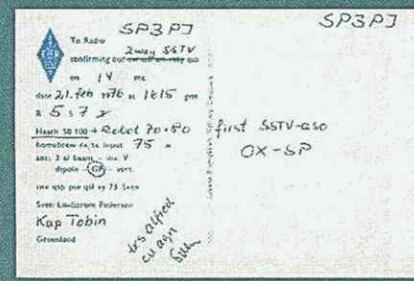 SP3PJ
To Radio SP3PJ
2way SSTV
confirming our qso
on 14 mc
date 21. feb 1976 at 1615 gmt
5 : 7
Heath SB 100 + Robot 70+80
input 75 w
ant: 3 el beam – inv. V
dipole – GP – vert.
qso pse qsl vy 73 Sven
Sven Lindstrøm Pedersen
Kap Tobin
Greenland
first SSTV-qso
OX-SP
tks alfred
cu agn
Sven